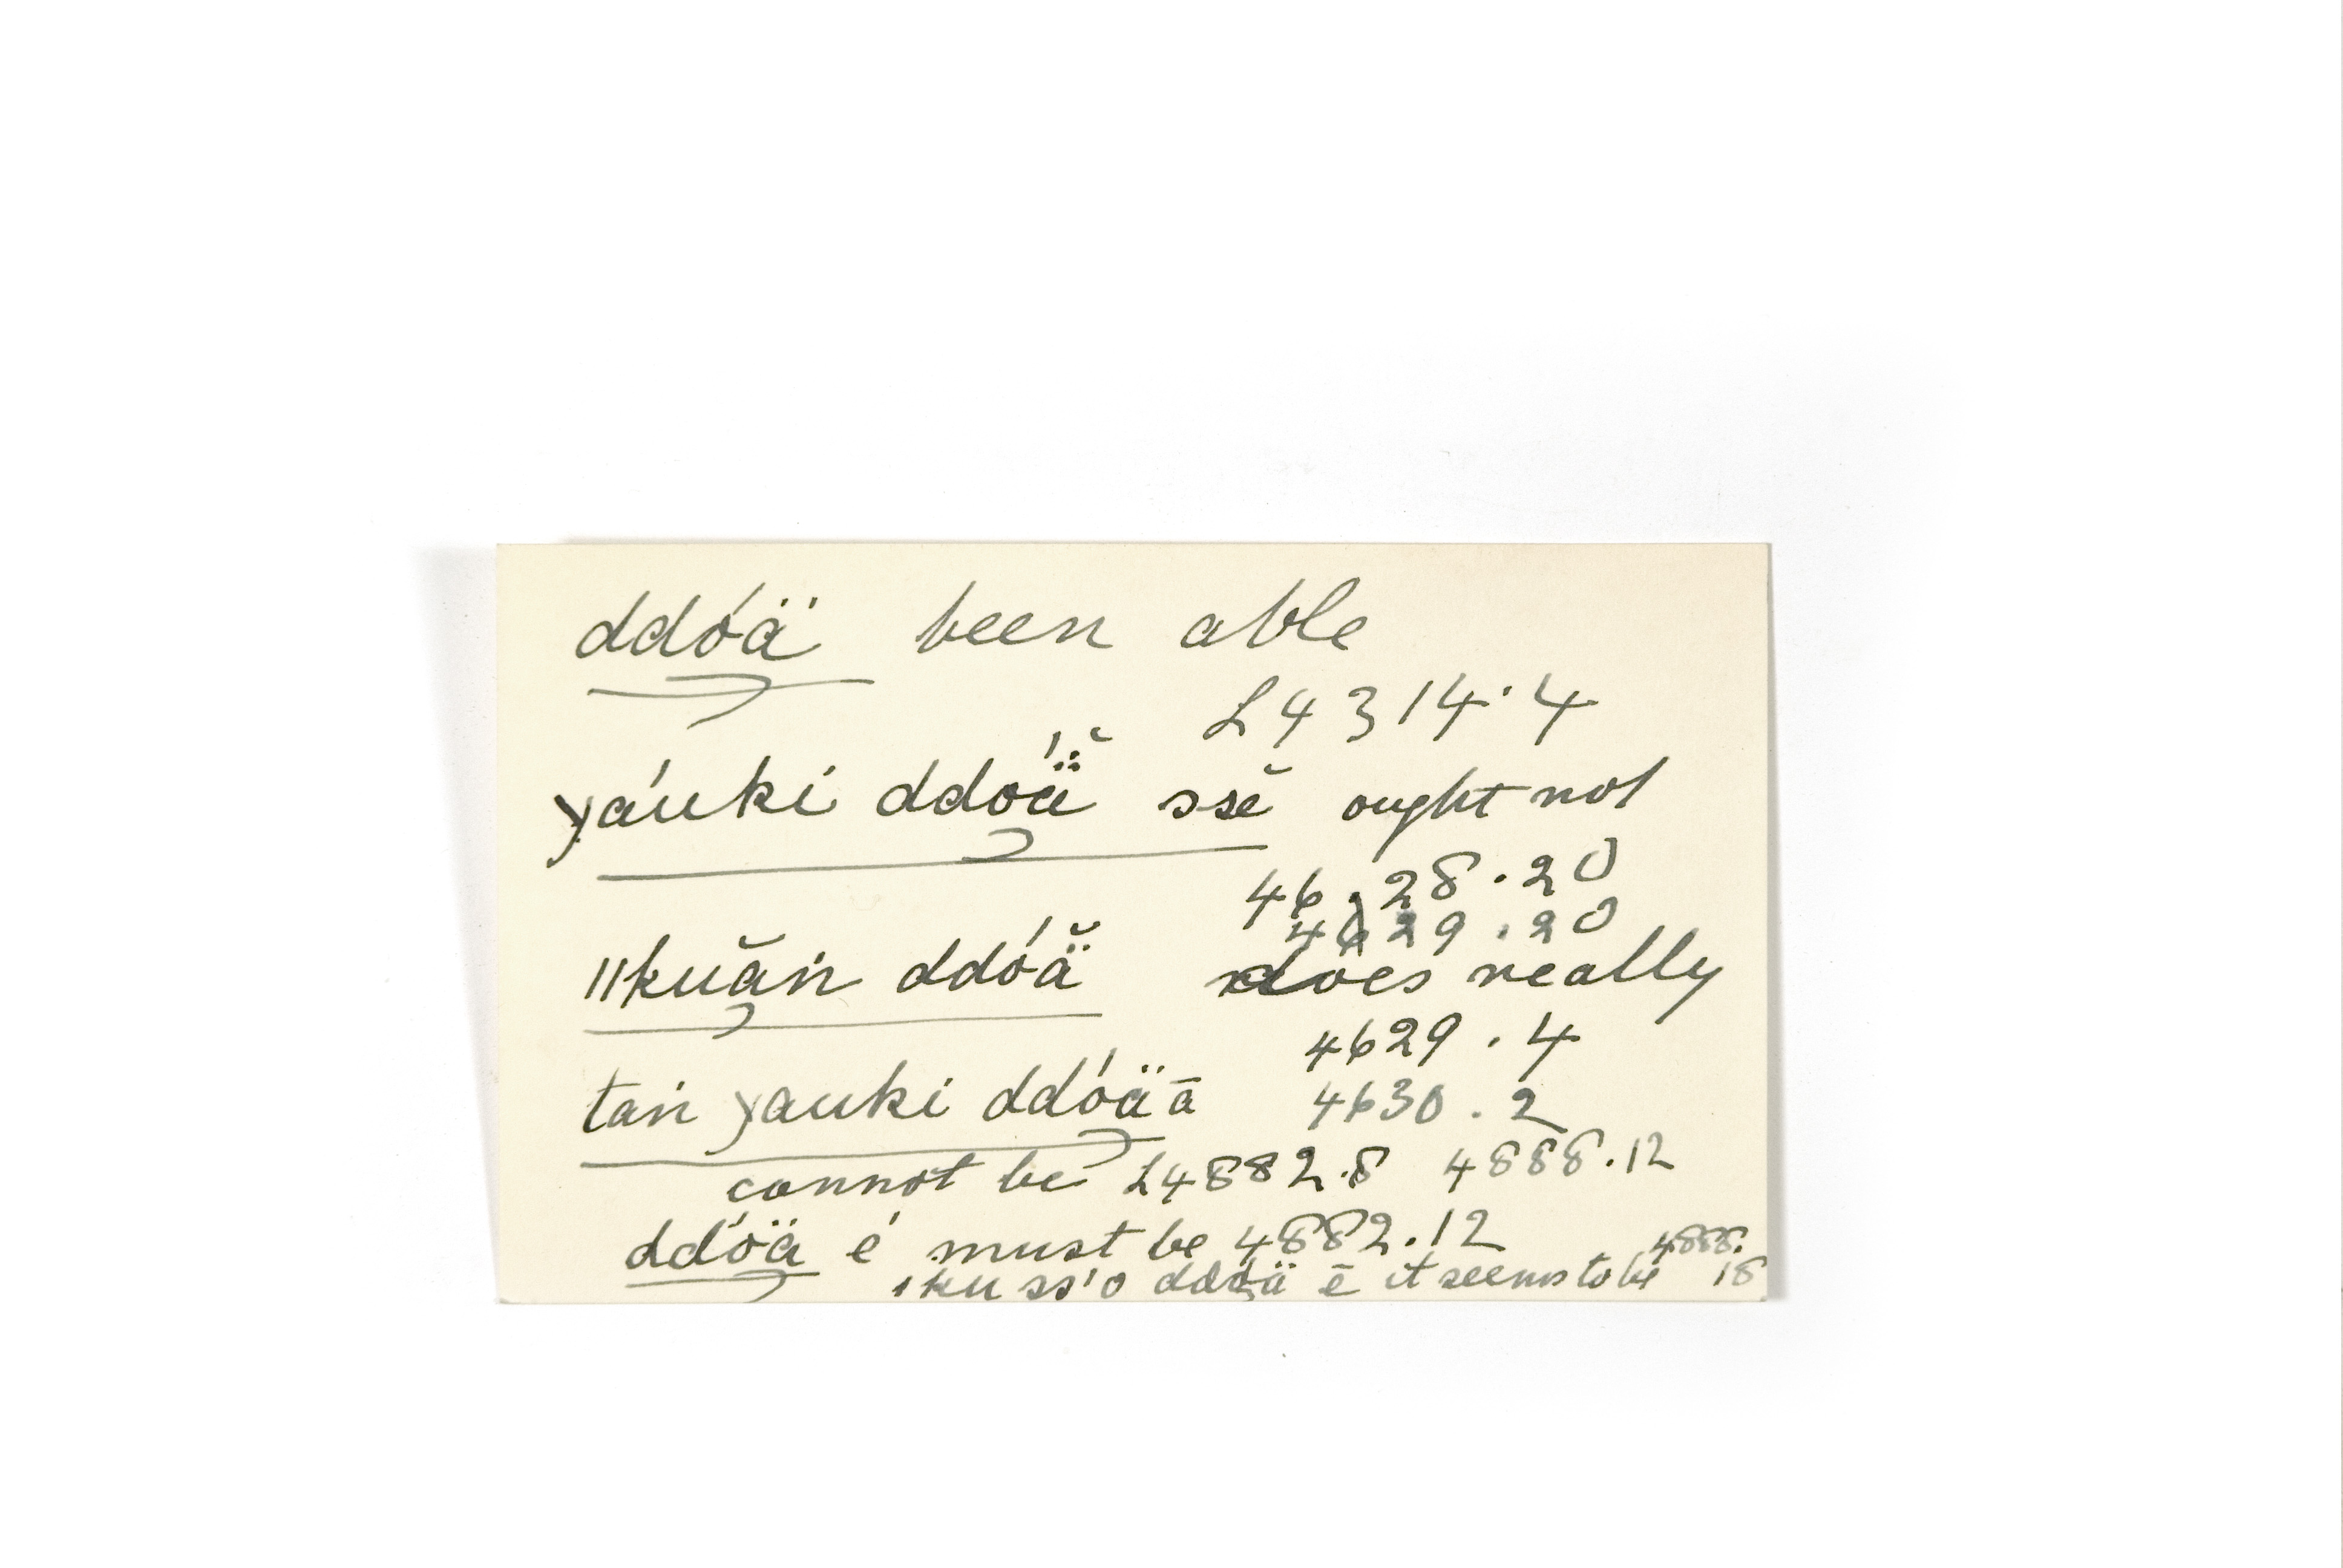 ddóä been able
L4314.4
yáuki ddóä̆ ssĕ ought not
46.28.20
4629.20
ǁkuăṅ ddóä̆ does really
4629.4
taṅ yauki ddóä ā 4630.2
cannot be L4882.8 4888.12
ddóä é must be 4882.12 4888.
ǀku ss'o ddóä ē it seems to be 18